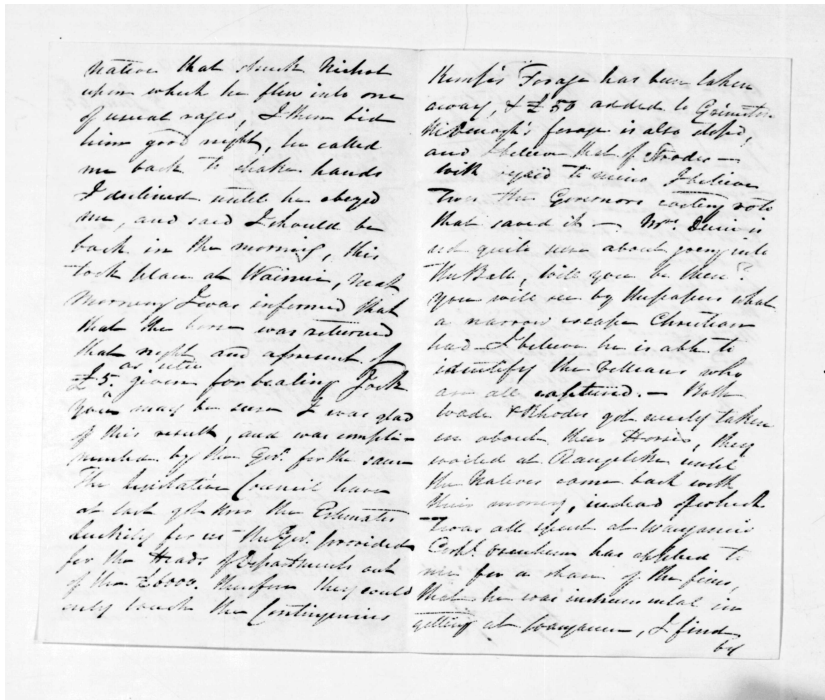 native that struck Nichol
upon which he flew into one
of usual rages, I then bid
him good night, he called
me back to shake hands
I declined until he obeyed
me, and said I should be
back in the morning, this
took place at Wainui, next
morning I was informed that
that the horse was returned
that night and a present of
£5 as utu given for beating Jock
You may be sure I was glad
of this result, and was compli-
mented by the Govr. for the same
The Legislative Council have
at last got thro the Estimates
luckily for us the Govr. provided
for the Heads of Departments out
of the £6000. therefore they could
only touch the Contingencies
Kemp's Forage has been taken
away, & £50 added to Grimstone
McDonogh's forage is also
and I believe that of Strodes —
With regard to mine I believe
twas the Governors casting vote
that saved it — Mr.
not quite sure about going into
the Ball, will you be there?
You will see by the papers what
a narrow escape Christian
had. I believe he is able to
identify the villians who
are all captured. — Both
Wade & Rhodes got nicely taken
in about their Horses, they
waited at Rangitikei until
the Natives came back with
their money, instead of which
twas all spent at Wanganui
Capt. has applied to
me for a share of the fines,
that he was instrumental in
getting at Wanganui, I find
by